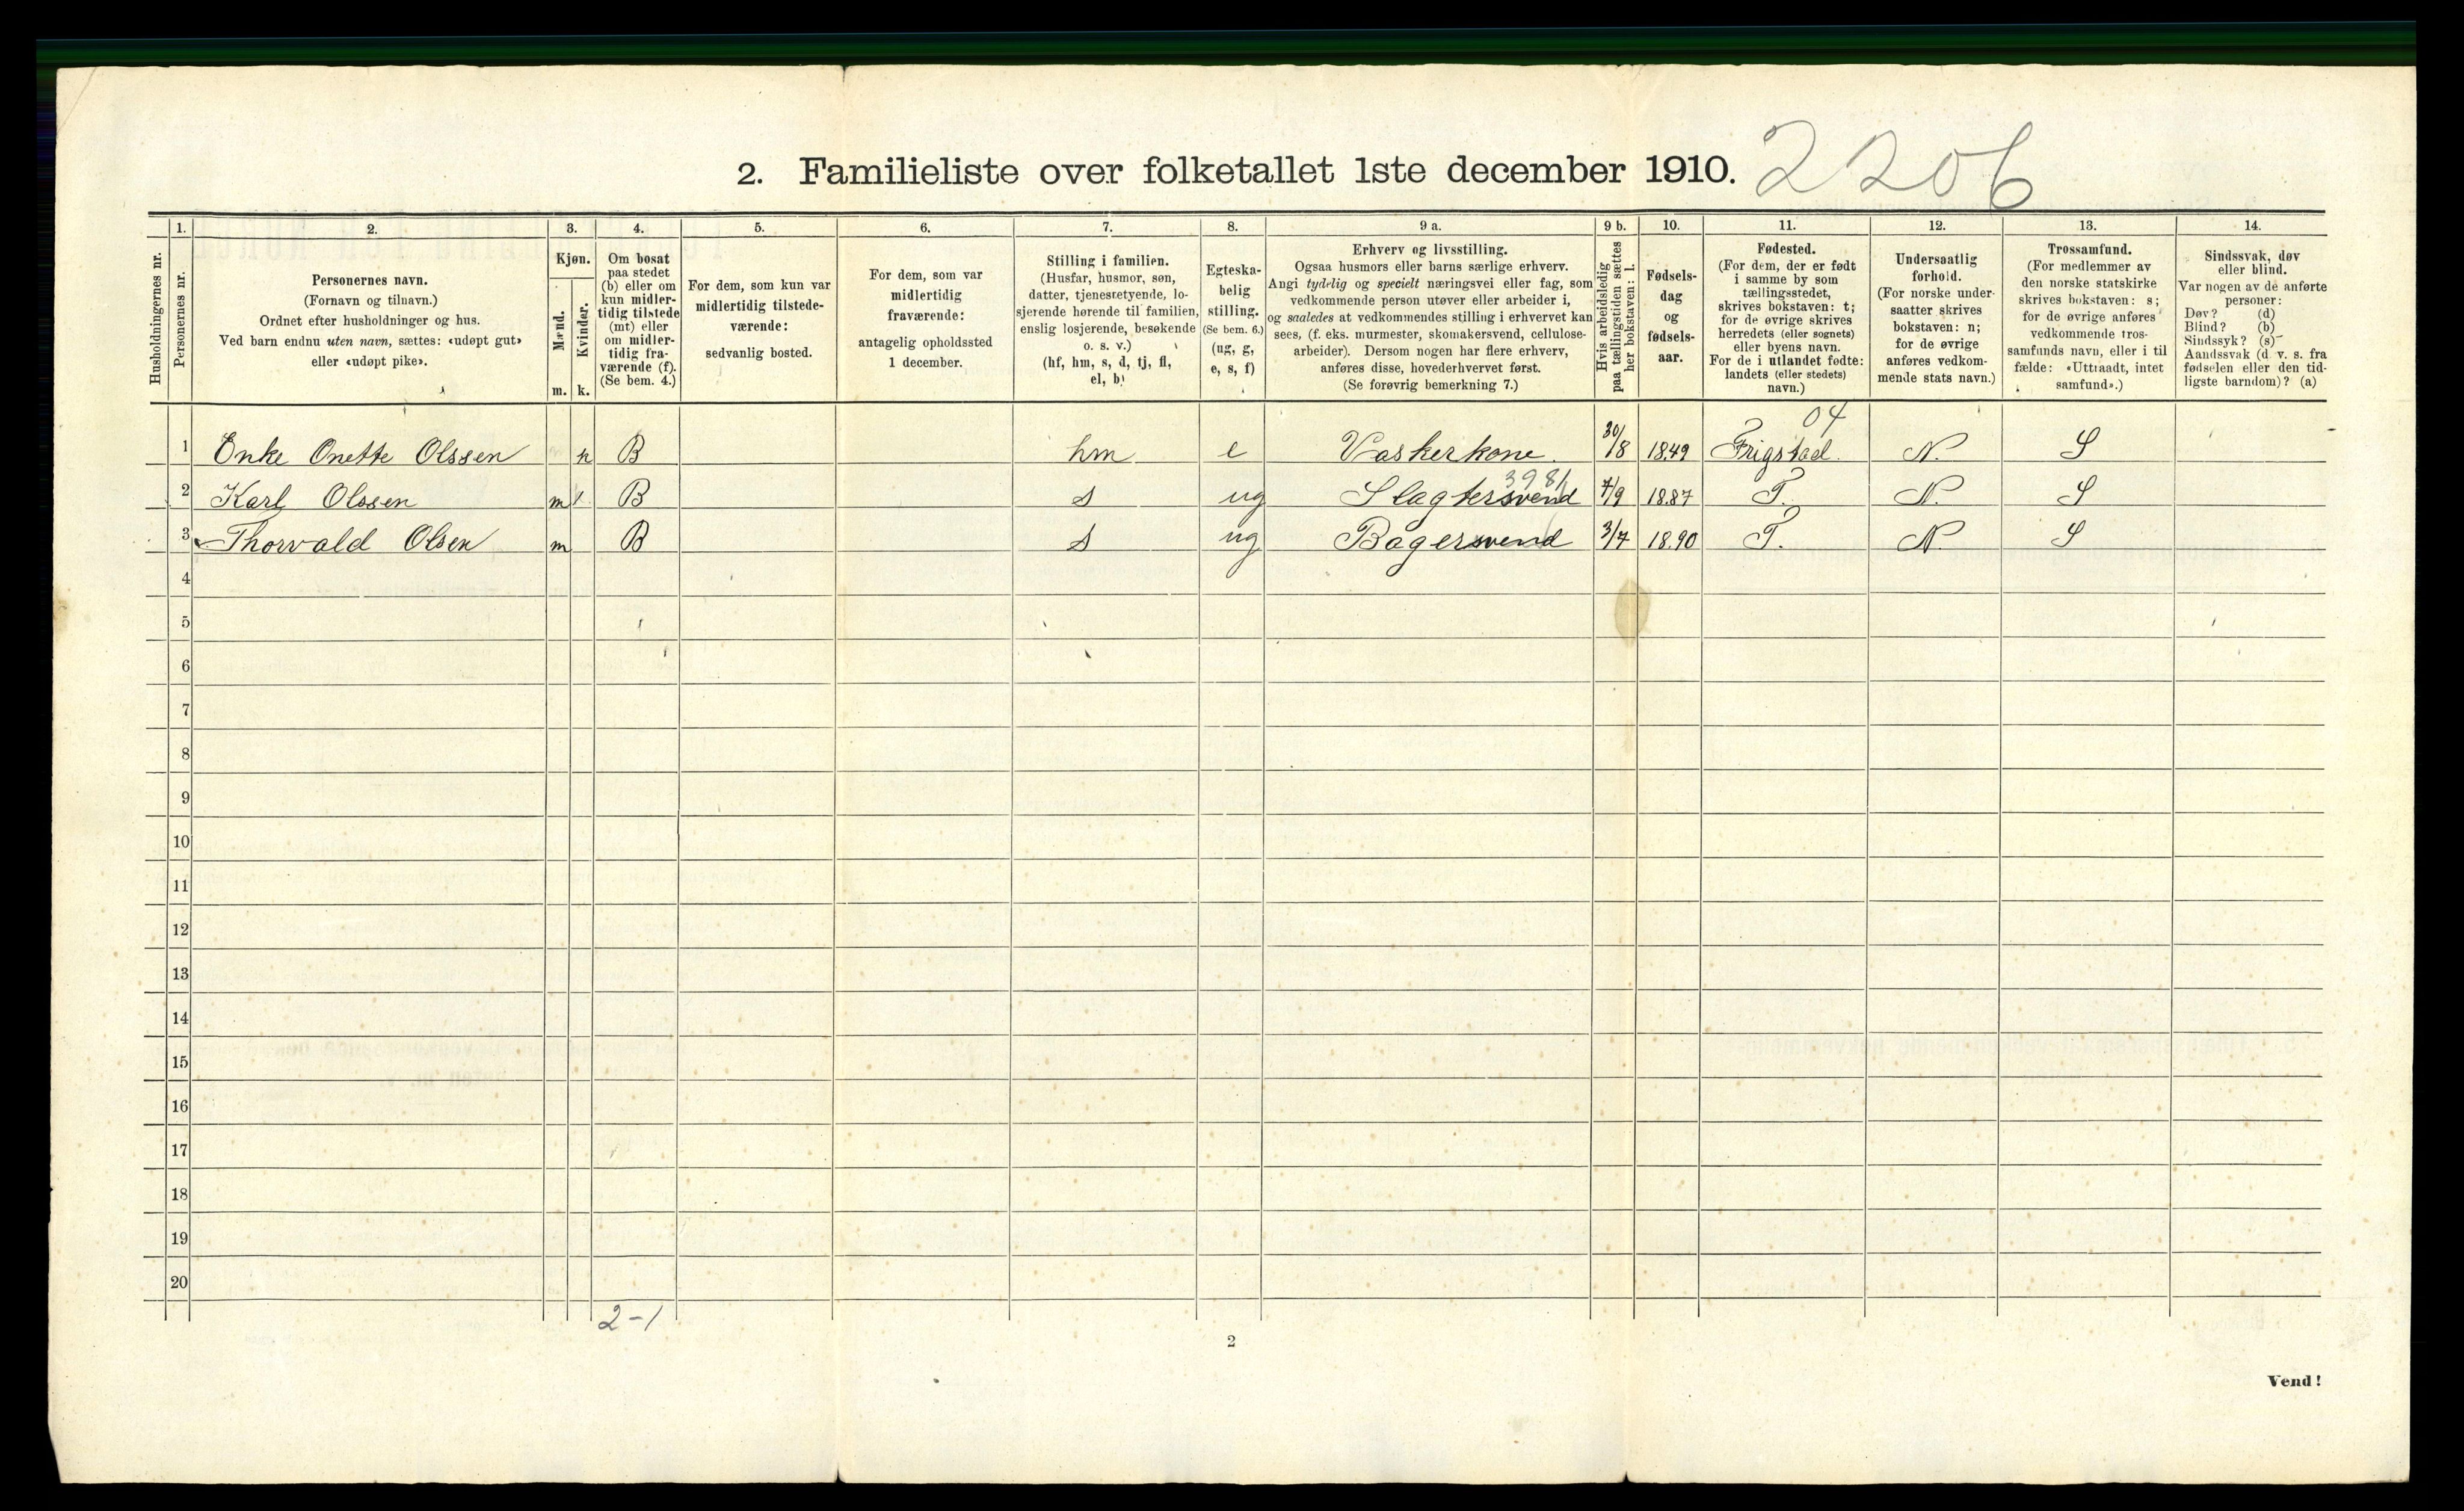 2. Familieliste over folketallet 1ste december 1910. 2206
1. 2. 3. 4. 5. 6. 7. 8. 9 a. 9 b. 10. 11. 12. 13. 14.
Husholdningernes nr.
Personernes nr.
Personernes navn.
(Fornavn og tilnavn.)
Ordnet efter husholdninger og hus.
Ved barn endnu uten navn, sættes: «udøpt gut»
eller «udøpt pike».
Kjøn.
Mænd.
Kvinder.
m. k.
Om bosat
paa stedet
(b) eller om
kun midler-
tidig tilstede
(mt) eller
om midler-
tidig fra-
værende (f).
(Se bem. 4.)
For dem, som kun var
midlertidig tilstede-
værende:
sedvanlig bosted.
For dem, som var
midlertidig
fraværende:
antagelig opholdssted
1 december.
Stilling i familien.
(Husfar, husmor, søn,
datter, tjenestetyende, lo-
sjerende hørende til familien,
enslig losjerende, besøkende
o. s. v.)
(hf, hm, s, d, tj, fl,
el, b)
Egteska-
belig
stilling.
(Se bem. 6.)
(ug, g,
e, s, f)
Erhverv og livsstilling.
Ogsaa husmors eller barns særlige erhverv.
Angi tydelig og specielt næringsvei eller fag, som
vedkommende person utøver eller arbeider i,
og saaledes at vedkommendes stilling i erhvervet kan
sees, (f. eks. murmester, skomakersvend, cellulose-
arbeider). Dersom nogen har flere erhverv,
anføres disse, hovederhvervet først.
(Se forøvrig bemerkning 7.)
Hvis arbeidsledig
paa tællingstiden sættes
her bokstaven: l.
Fødsels-
dag
og
fødsels-
aar.
Fødested.
(For dem, der er født
i samme by som
tællingsstedet,
skrives bokstaven: t;
for de øvrige skrives
herredets (eller sognets)
eller byens navn.
For de i utlandet fødte:
landets (eller stedets)
navn.)
Undersaatlig
forhold.
(For norske under-
saatter skrives
bokstaven: n;
for de øvrige
anføres vedkom-
mende stats navn.)
Trossamfund.
(For medlemmer av
den norske statskirke
skrives bokstaven: s;
for de øvrige anføres
vedkommende tros-
samfunds navn, eller i til-
fælde: «Uttraadt, intet
samfund».)
Sindssvak, døv
eller blind.
Var nogen av de anførte
personer:
Døv? (d)
Blind? (b)
Sindssyk? (s)
Aandssvak (d. v. s. fra
fødselen eller den tid-
ligste barndom)? (a)
04
1 Enke Onette Olssen k B hm e Vaskerkone. 30/8 1849 Frigstad. N. S
3981
2 Karl Olssen m B s ug Slagtersvend 7/9 1887 T. N. S
3 Thorvald Olsen m B s ug Bagersvend 3/7 1890 T. N. S
4
5
6
7
8
9
10
11
12
13
14
15
16
17
18
19
20
2-1
2
Vend!